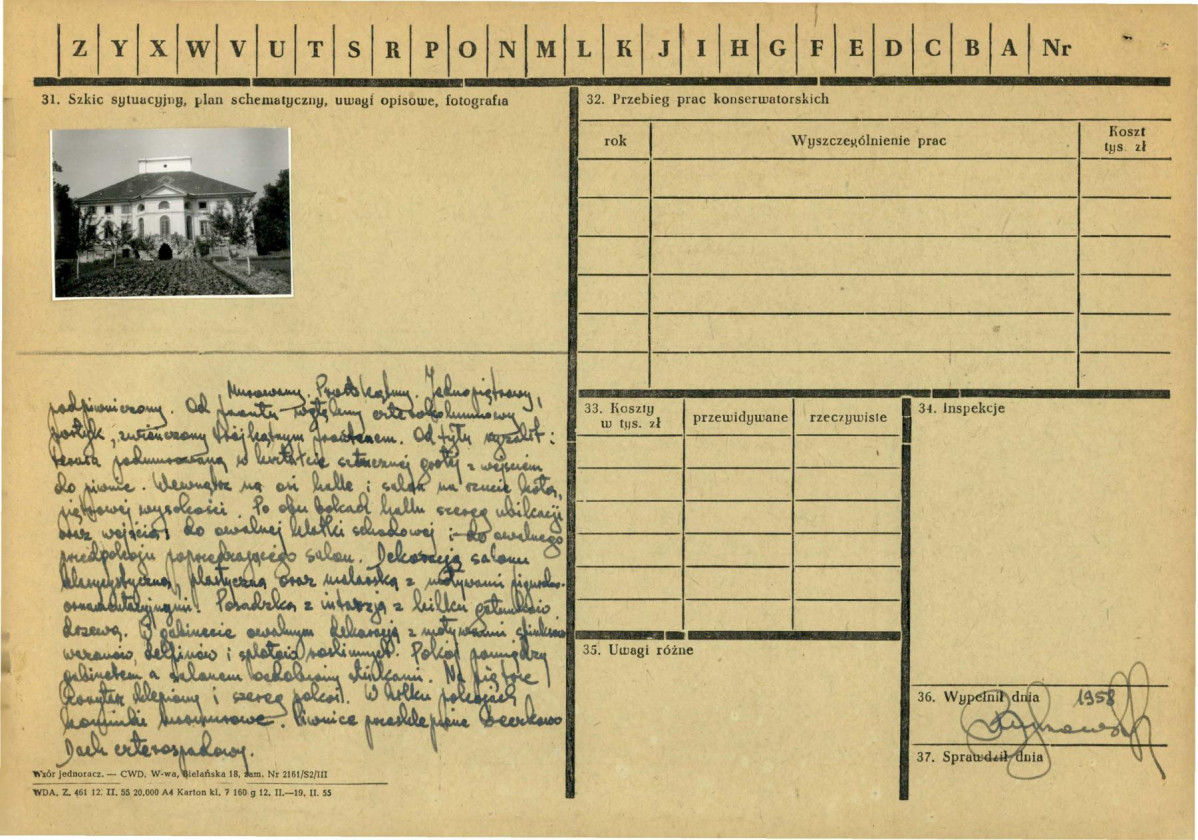 Z Y X W V U T S R P O N M L K J I H G F E D C B A Nr
31. Szkic sytuacyjny, plan schematyczny, uwagi opisowe, fotografia
Murowany. Prostokątny. Jednopiętrowy,
podpiwniczony. Od frontu wgłębny czterokolumnowy
portyk, zwieńczony trójkątnym frontonem. Od tyłu ryzalit i
terasa podmurowana w kształcie sztucznej groty z wejściem
do piwnic. Wewnątrz na osi halle i salon na rzucie koła,
piętrowej wysokości. Po obu bokach hallu szereg ubikacji
oraz wejścia do owalnej klatki schodowej i do owalnego
przedpokoju poprzedzającego salon. Dekoracja salonu
klasycystyczna, plastyczna oraz malarska z motywami
ornamentacyjnymi. Posadzka z intarzją z kilku gatunków
drzewa. W gabinecie owalnym dekoracja z motywami sfinksów
wazonów, delfinów i splotów roślinnych. Pokój pomiędzy
gabinetem a salonem ozdobiony stiukami. Na piętrze
korytarz sklepiony i szereg pokoi. W kilku pokojach
kominki marmurowe. Piwnice przesklepione beczkowo
Dach czterospadowy.
Wzór jednoracz. — CWD. W-wa, Bielańska 18, zam. Nr 2161/S2/III
WDA. Z. 461 12. II. 55 20.000 A4 Karton kl. 7 160 g 12. II.—19. II. 55
32. Przebieg prac konserwatorskich
rok Wyszczególnienie prac Koszt tys. zł
33. Koszty w tys. zł przewidywane rzeczywiste
34. Inspekcje
35. Uwagi różne
36. Wypełnił dnia 1958
37. Sprawdził dnia